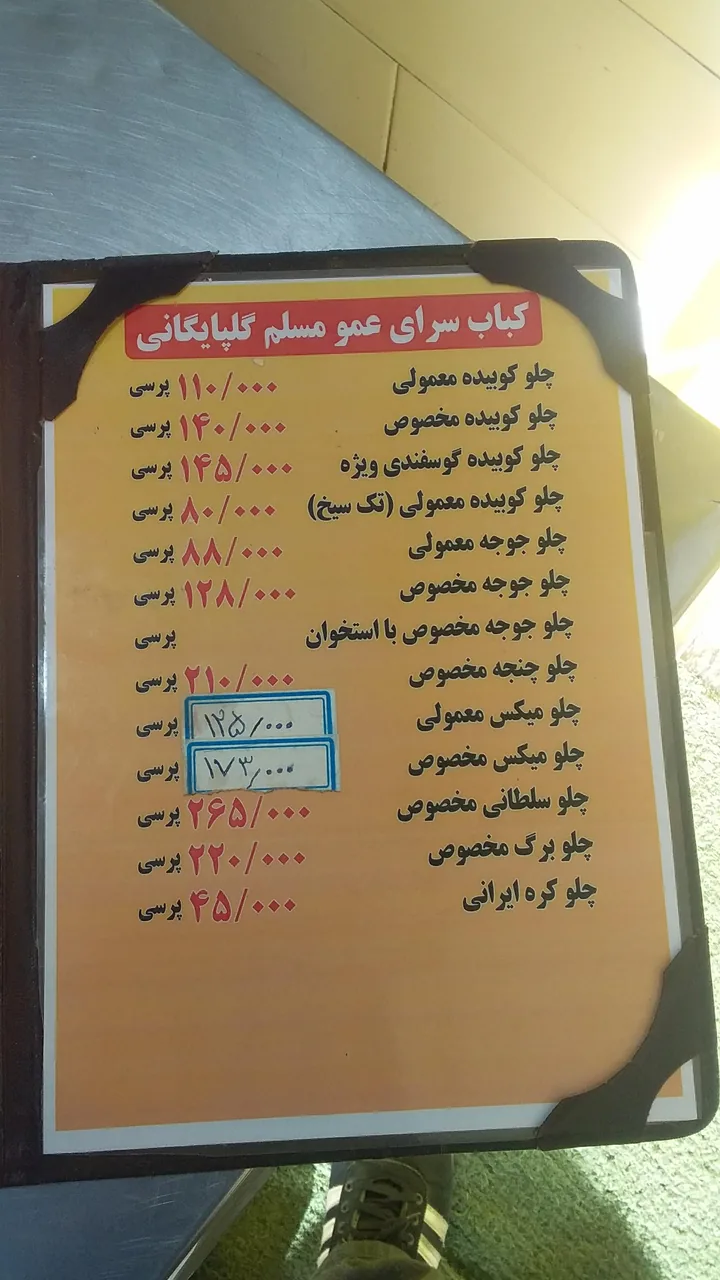 کباب سرای عمو مسلم گلپایگانی
چلو کوبیده معمولی ۱۱۰/۰۰۰ پرسی
چلو کوبیده مخصوص ۱۴۰/۰۰۰ پرسی
چلو کوبیده گوسفندی ویژه ۱۴۵/۰۰۰ پرسی
چلو کوبیده معمولی (تک سیخ) ۸۰/۰۰۰ پرسی
چلو جوجه معمولی ۸۸/۰۰۰ پرسی
چلو جوجه مخصوص ۱۲۸/۰۰۰ پرسی
چلو جوجه مخصوص با استخوان پرسی
چلو چنجه مخصوص ۲۱۰/۰۰۰ پرسی
چلو میکس معمولی ۱۲۵/۰۰۰ پرسی
چلو میکس مخصوص ۱۷۳/۰۰۰ پرسی
چلو سلطانی مخصوص ۲۶۵/۰۰۰ پرسی
چلو برگ مخصوص ۲۲۰/۰۰۰ پرسی
چلو کره ایرانی ۴۵/۰۰۰ پرسی